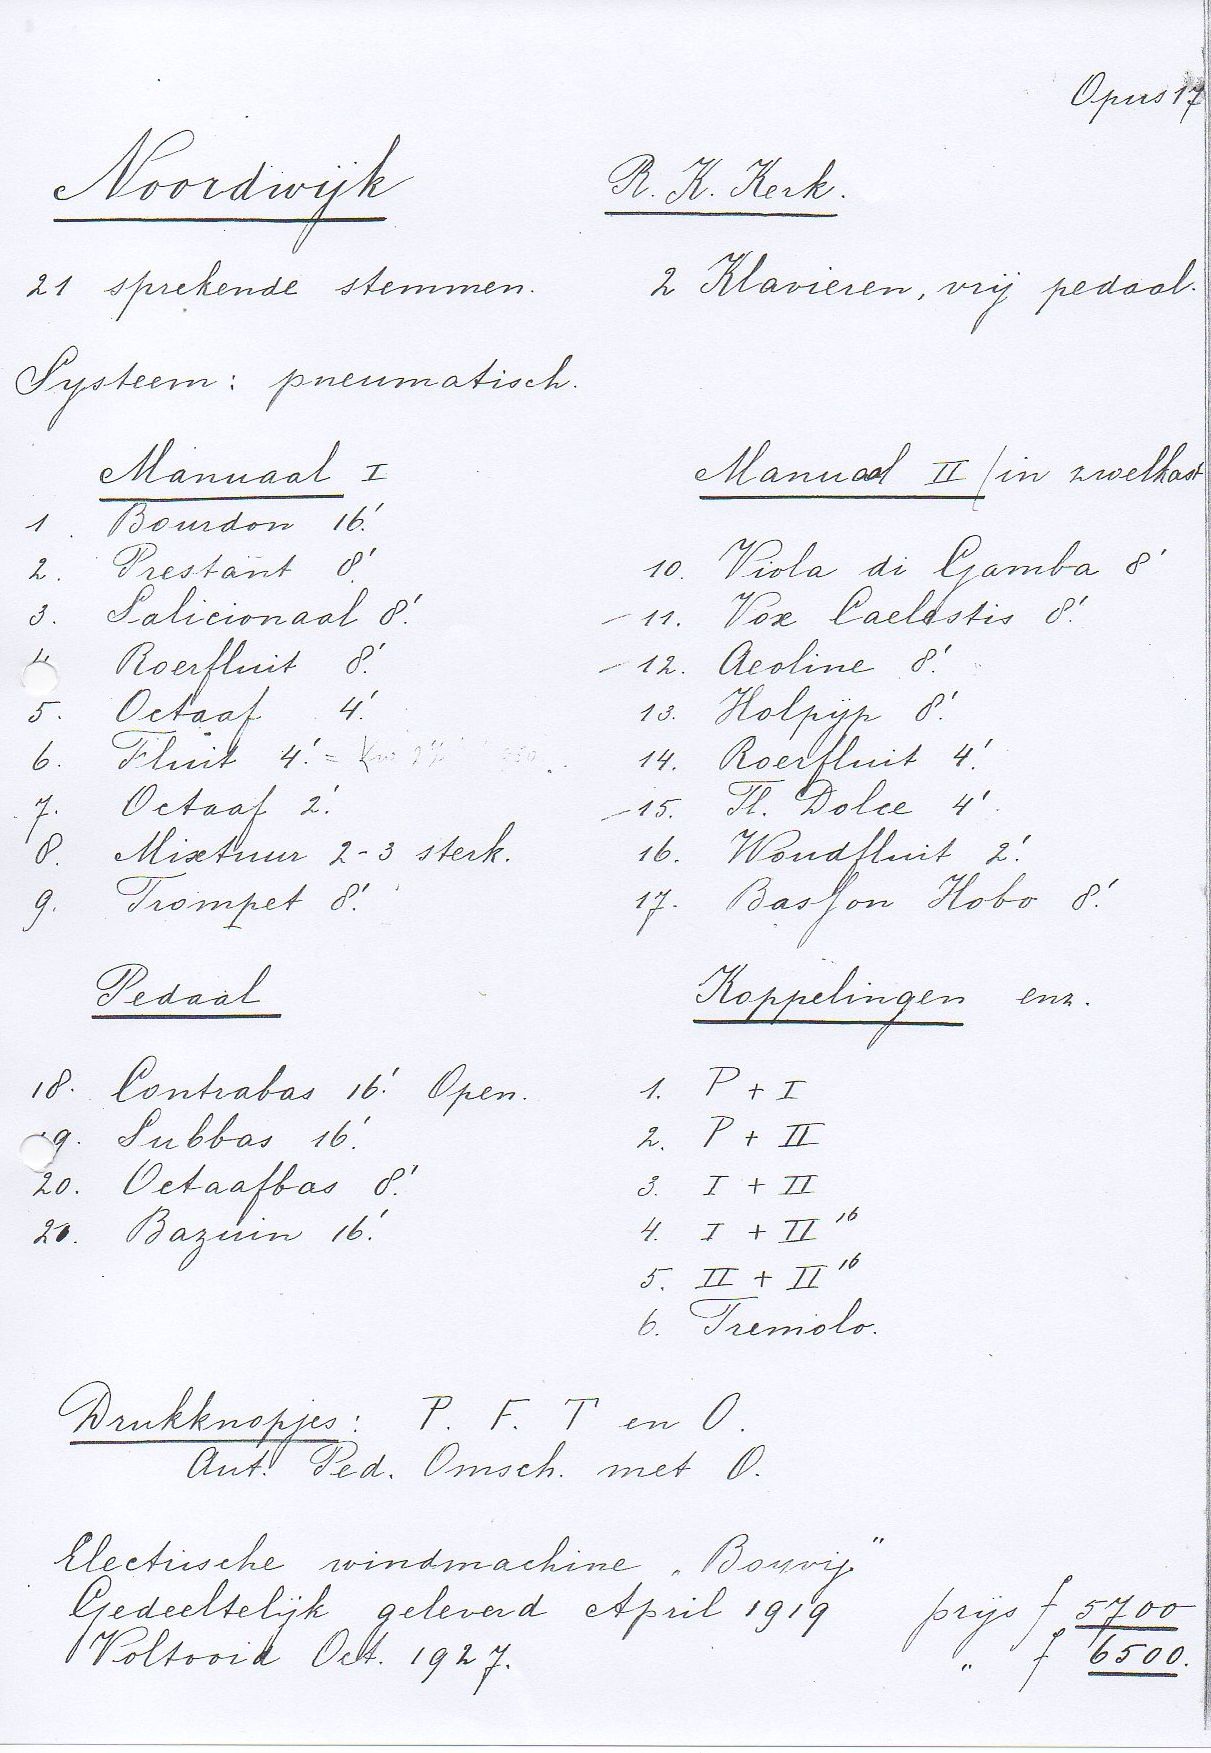 Opus 17
Noordwijk
R. K. Kerk.
21 sprekende stemmen.
2 Klavieren, vrij pedaal.
Systeem: pneumatisch.
Manuaal I
1. Bourdon 16'
2. Prestant 8'
3. Salicionaal 8'
4 Roerfluit 8'
5. Octaaf 4'
6. Fluit 4' =
7. Octaaf 2'
8. Mixtuur 2-3 sterk.
9. Trompet 8'
Manuaal II (in zwelkast
10. Viola di Gamba 8'
- 11. Vox Caelestis 8'
- 12. Aeoline 8'
13. Holpijp 8'
14. Roerfluit 4'
- 15. Fl. Dolce 4'
16. Woudfluit 2'
17. Basson Hobo 8'
Pedaal
18. Contrabas 16' Open.
19. Subbas 16'
20. Octaafbas 8'
20. Bazuin 16'
Koppelingen enz.
1. P + I
2. P + II
3. I + II
4. I + II 16
5. II + II 16
6. Tremolo.
Drukknopjes: P. F. T en O.
Aut. Ped. Omsch. met O.
Electrische windmachine „Bouvij"
Gedeeltelijk geleverd April 1919 prijs f 5700
Voltooid Oct. 1927. " f 6500.